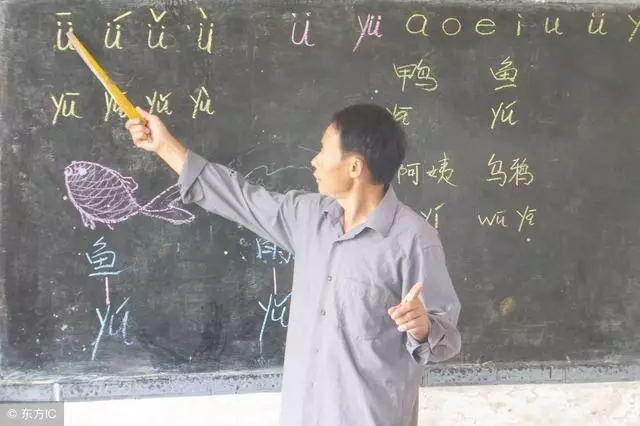 ǖ ǘ ǚ ǜ ü yü a o e i u ü y
yū yú yǔ yù
鸭 鱼
yā yú
阿姨 乌鸦
yí wū yā
鱼
yú
© 东方IC